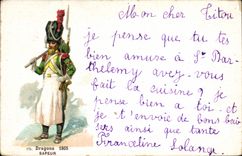 Mon cher Titou
je pense que tu tes
bien amusé à St Bar-
thelemy avez-vous
fait la cuisine? je
pense bien a toi et
je t'envoie de bons bai-
sers ainsi que tante
Franceline Solange
Dragons 1805
SAPEUR